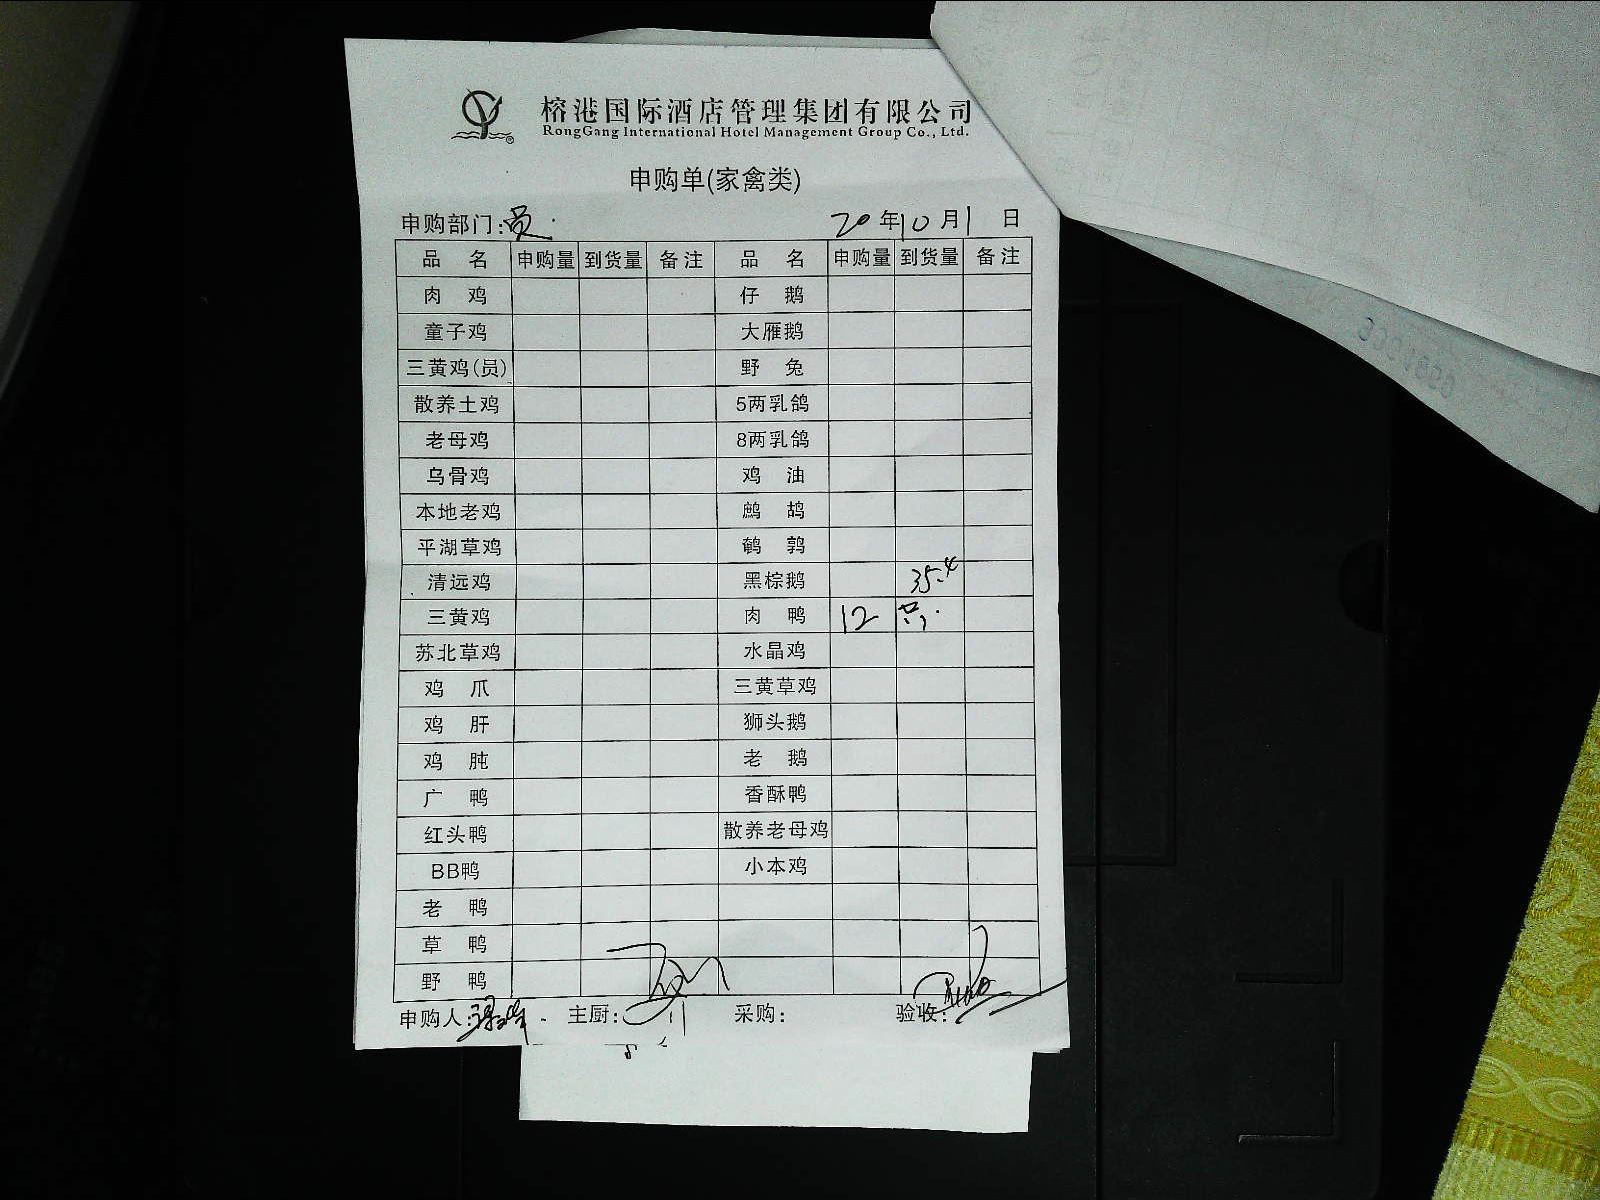 榕港国际酒店管理集团有限公司
RongGang International Hotel Management Group Co., Ltd.
申购单(家禽类)
申购部门:员 20年10月1日
品名 申购量 到货量 备注 品名 申购量 到货量 备注
肉鸡 仔鹅
童子鸡 大雁鹅
三黄鸡(员) 野兔
散养土鸡 5两乳鸽
老母鸡 8两乳鸽
乌骨鸡 鸡油
本地老鸡 鹧鸪
平湖草鸡 鹌鹑
清远鸡 黑棕鹅 35.4
三黄鸡 肉鸭 12 只
苏北草鸡 水晶鸡
鸡爪 三黄草鸡
鸡肝 狮头鹅
鸡肫 老鹅
广鸭 香酥鸭
红头鸭 散养老母鸡
BB鸭 小本鸡
老鸭
草鸭
野鸭
申购人: 主厨: 采购: 验收: